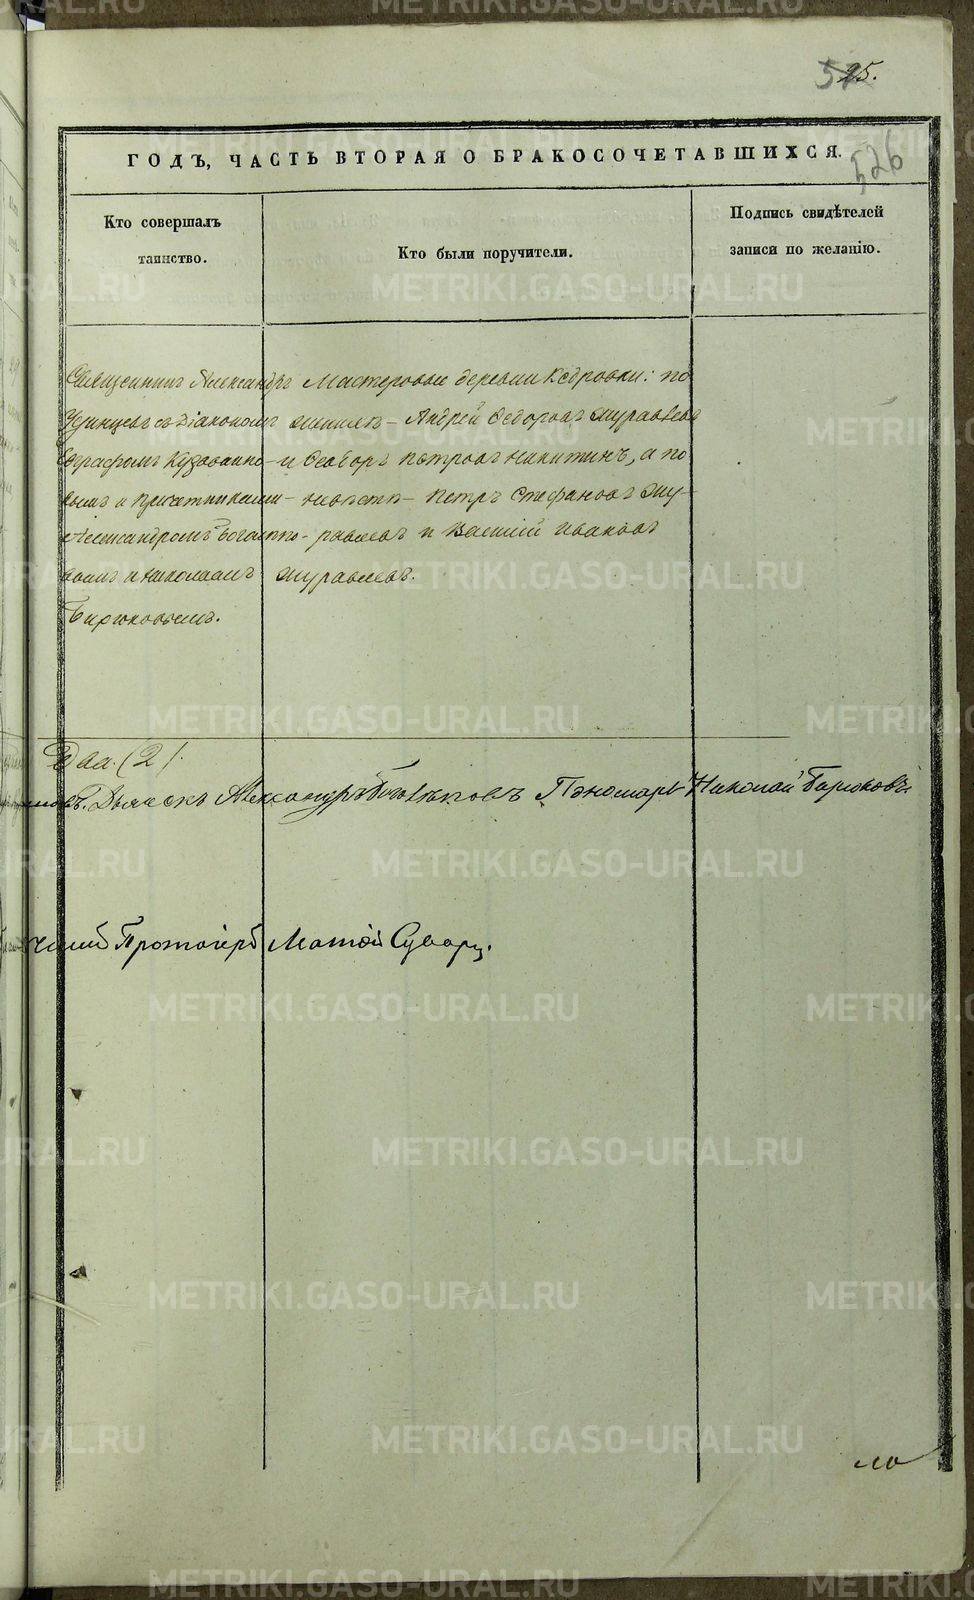 25.
526
ГОДЪ, ЧАСТЬ ВТОРАЯ О БРАКОСОЧЕТАВШИХСЯ.
Кто совершалъ таинство.
Кто были поручители.
Подпись свидѣтелей записи по желанію.
Священникъ Александръ
Удинцевъ съ Діакономъ
Евграфомъ
вымъ и Причетниками
Александромъ
вымъ и Николаемъ
Бирюковымъ.
Мастеровые деревни Кедровки: по
женихѣ - Андрей Ѳедоровъ Журавлевъ
и Ѳеодоръ Петровъ Никитинъ, а по
невѣстѣ - Петръ Стефановъ Жу-
равлевъ и Василій Ивановъ
Журавлевъ.
Два. (2).
Дьячекъ Александръ Пономарь Николай Бирюковъ.
Протоіерей
METRIKI.GASO-URAL.RU